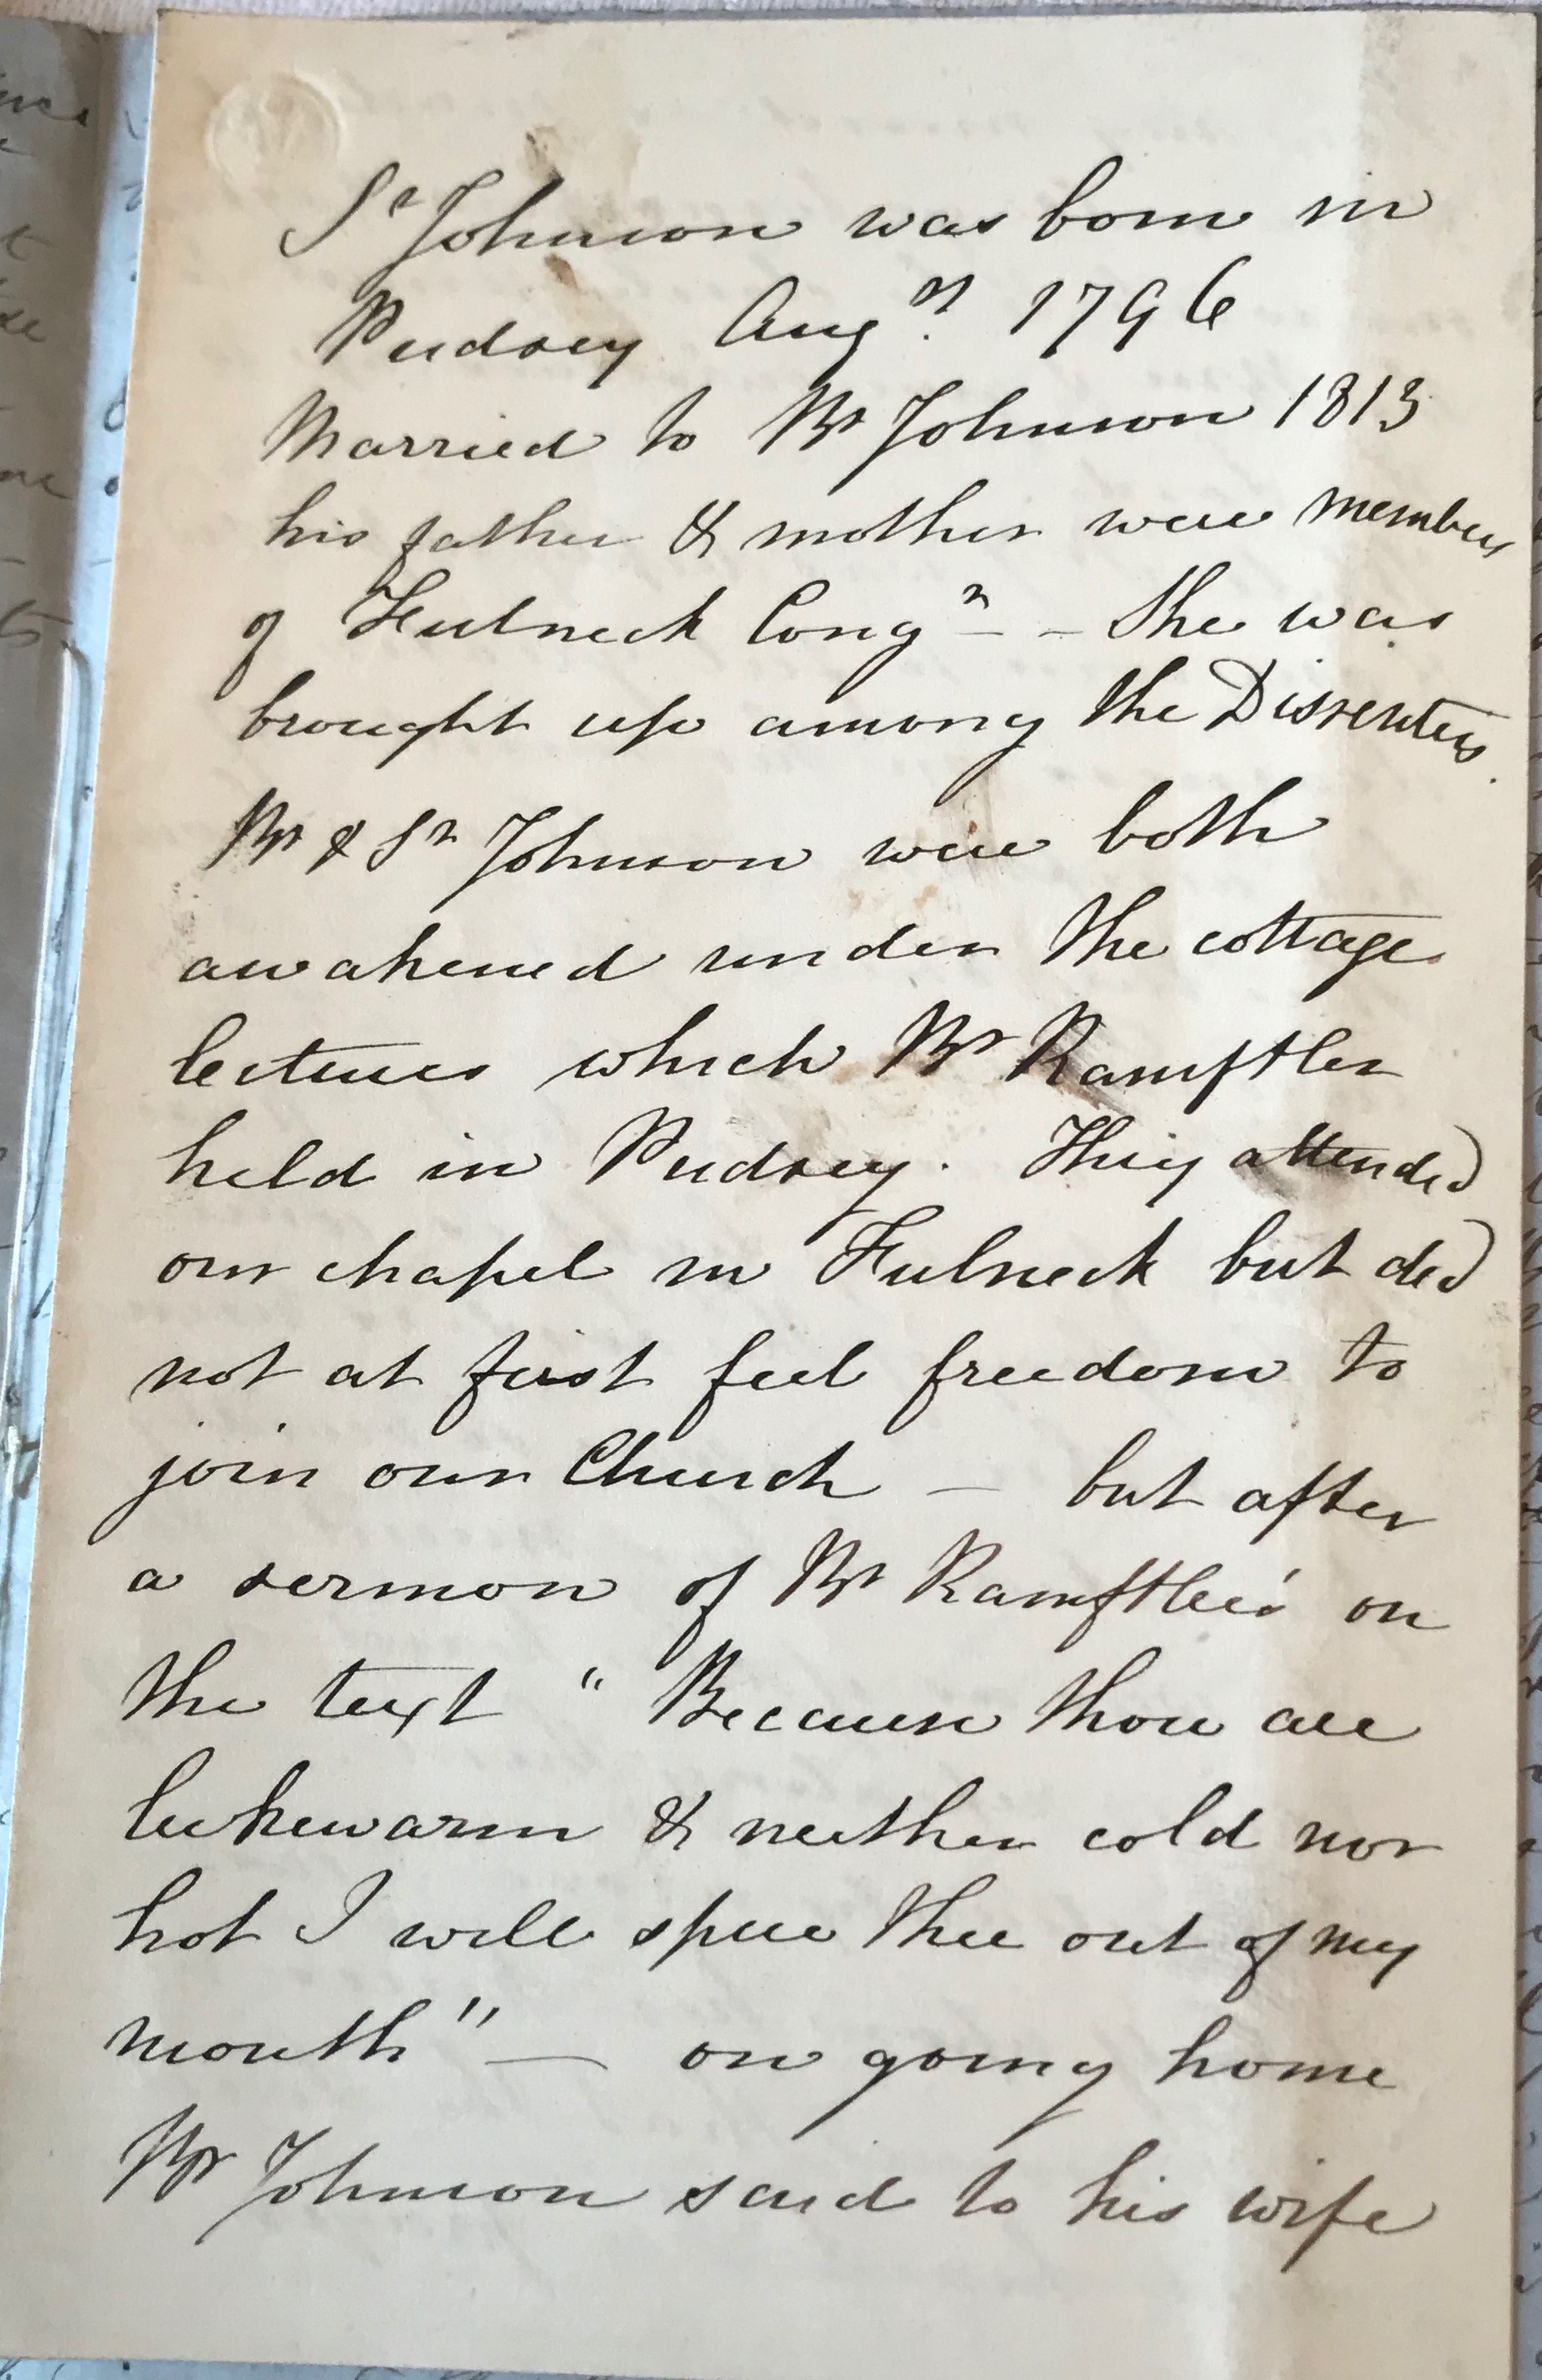 Sr Johnson was born in
Pudsey Augst. 1796
Married to Br Johnson 1813
his father & mother were members
of Fulneck Congn - - She was
brought up among the Dissenters.
Br & Sr Johnson were both
awakened under the cottage
lectures which Br Ramftler
held in Pudsey. They attended
our chapel in Fulneck but did
not at first feel freedom to
join our Church — but after
a sermon of Br Ramftler's on
the text "Because thou are
lukewarm & neither cold nor
hot I will spue thee out of my
mouth" — on going home
Br Johnson said to his wife